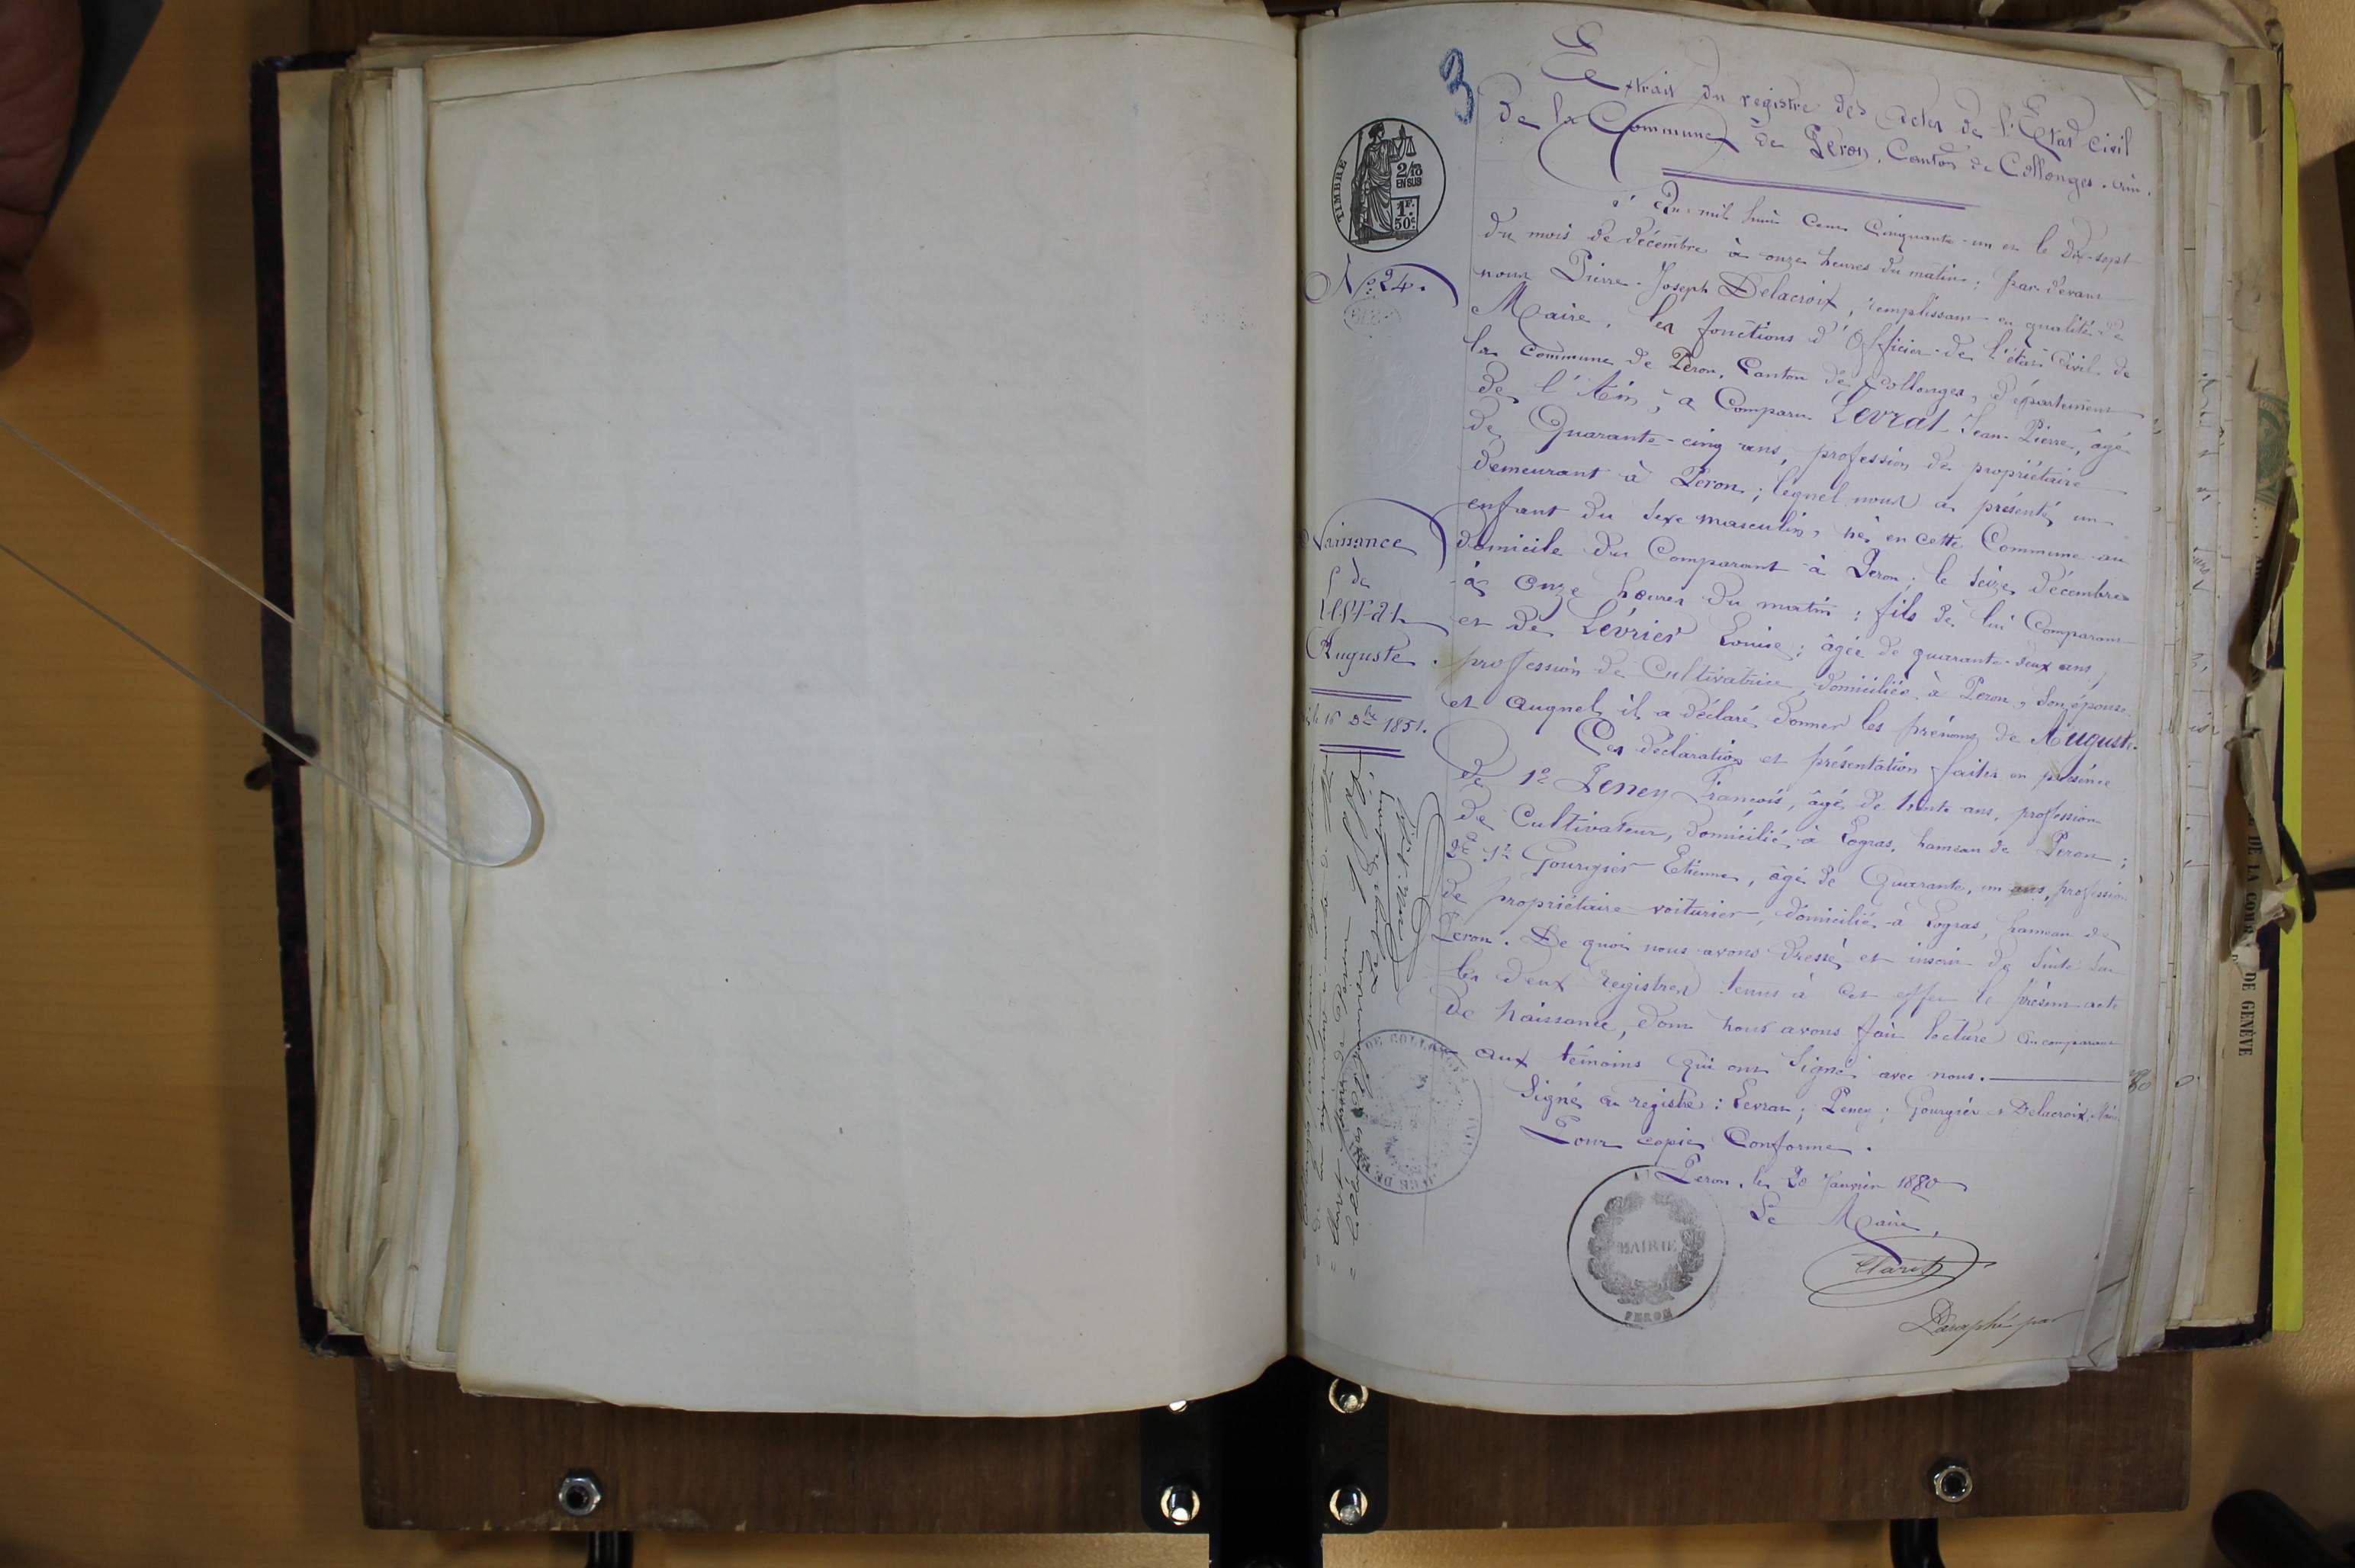 3
Extrait du registre des actes de l'Etat Civil
de la Commune de Peron, Canton de Collonges. Ain.
TIMBRE
2/10
EN SUS
1F.
50c
L'An mil huit cent cinquante-un et le dix-sept
du mois de décembre à onze heures du matin; par devant
nous Pierre-Joseph Delacroix, remplissant en qualité de
Maire, les fonctions d'Officier de l'état Civil de
la Commune de Peron, Canton de Collonges, département
de l'Ain, a Comparu Levrat Jean-Pierre, âgé
de Quarante-cinq ans, profession de propriétaire
demeurant à Peron; lequel nous a présenté un
enfant du sexe masculin, né en cette Commune au
domicile du Comparant à Peron; le seize décembre
à Onze heures du matin; fils de lui Comparant
et de Lévrier Louise; âgée de quarante-deux ans,
profession de Cultivatrice, domiciliée à Peron, son épouse
et auquel il a déclaré donner les prénoms de Auguste.
Ces déclaration et présentation faites en présence
de 1° Peney François, âgé de trente ans, profession
de Cultivateur, domicilié à Logras, hameau de Peron;
Gourgier Etienne, âgé de Quarante, un ans, profession
de propriétaire-voiturier, domicilié à Logras, hameau de
Peron. De quoi nous avons dressé et inscrit de suite sur
les deux registres tenus à cet effet le présent acte
de naissance, dont nous avons fait lecture au comparant
aux témoins qui ont signé avec nous.
Signé au registre: Levrat; Peney; Gourgier & Delacroix, Maire
Pour copie Conforme.
Peron, le 20 Janvier 1880
Le Maire,
MAIRIE
PERON
Paraphé par
N° 24.
Naissance
de
Levrat
Auguste
16 Xbre 1851.
Le juge de paix,
DE COLLONGES
DE LA COUR
DE GENÈVE